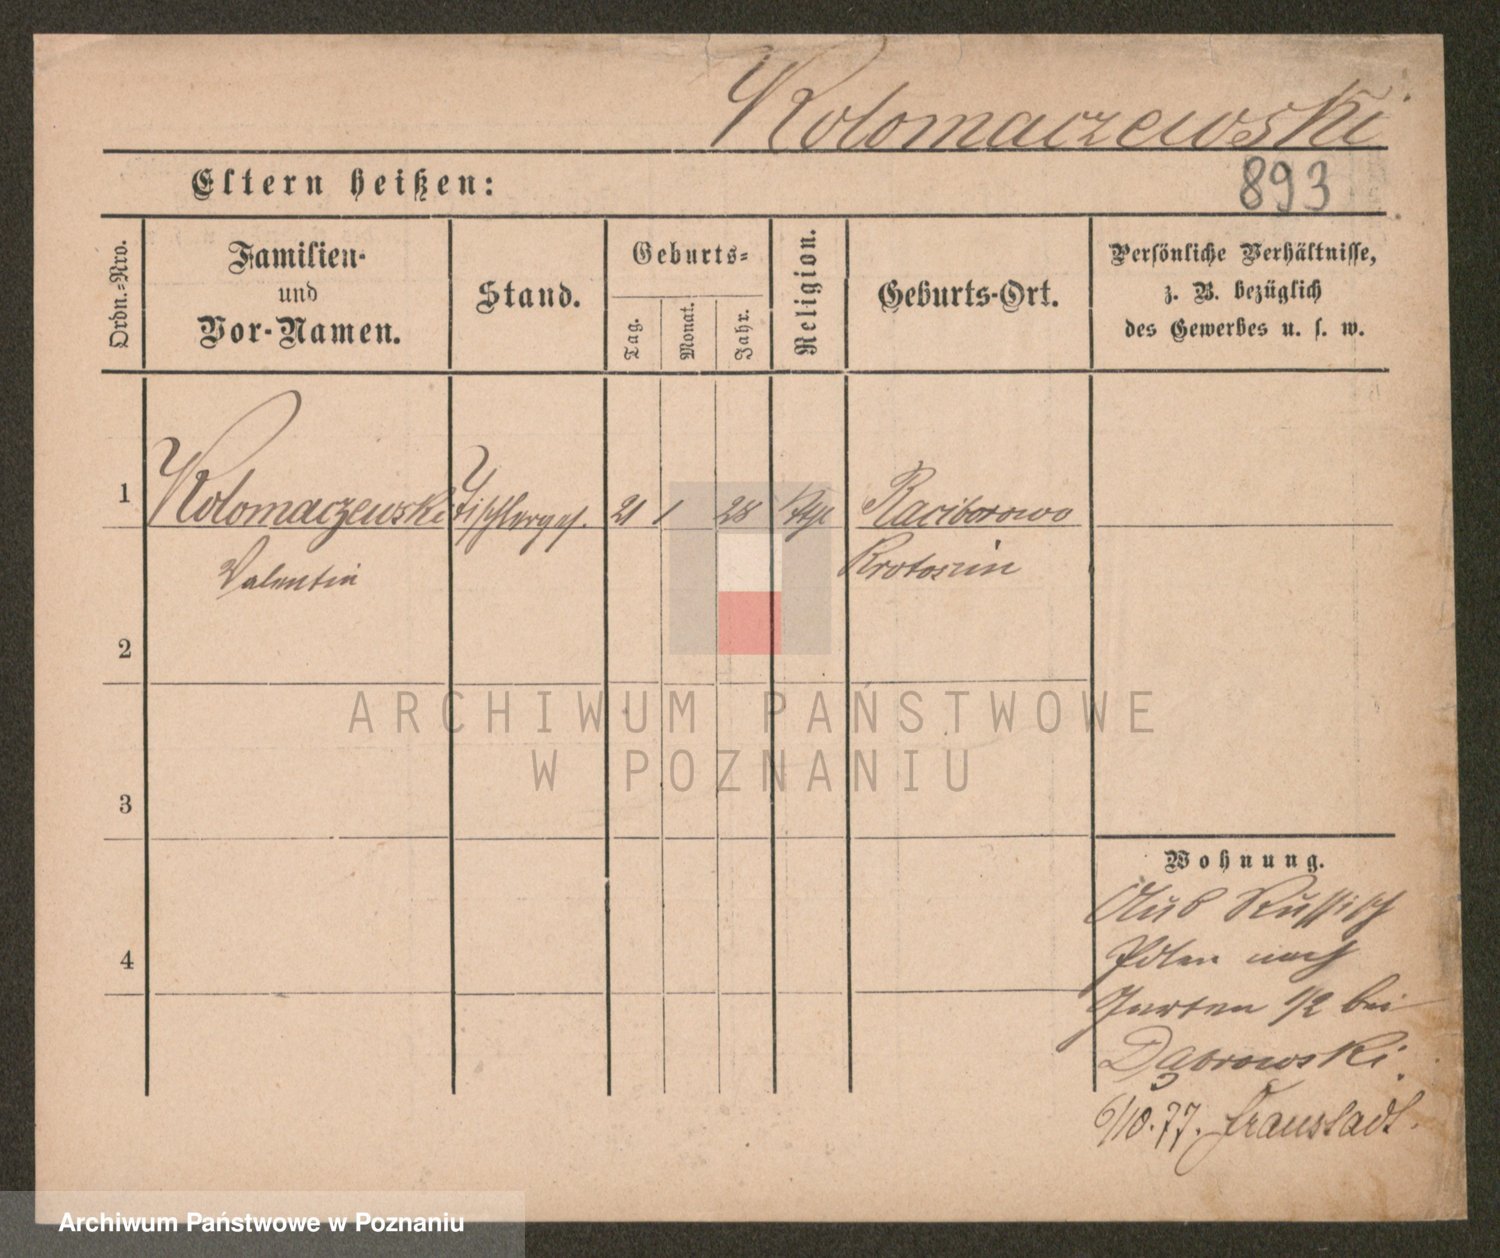 Kolomaczewski
893
Eltern heißen:
Ordn.-Nro.
Familien-
und
Vor-Namen.
Stand.
Geburts-
Tag.
Monat.
Jahr.
Religion.
Geburts-Ort.
Persönliche Verhältnisse,
z. B. bezüglich
des Gewerbes u. s. w.
1 Kolomaczewski Tischlerges. 21 1 28 Raciborowo
Valentin Krotoszin
2
3
4
Wohnung.
Aus Russisch
Polen nach
Garten 1/2 bei
Dąbrowski.
6/10.77. Fraustadt.
ARCHIWUM PAŃSTWOWE
W POZNANIU
Archiwum Państwowe w Poznaniu